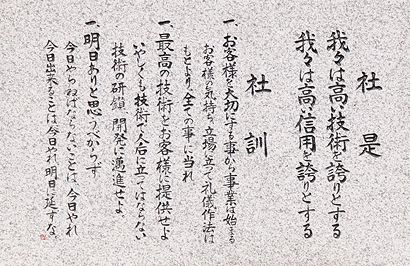 社是
我々は高い技術を誇りとする
我々は高い信用を誇りとする
社訓
一、お客様を大切にする事から事業は始まる
お客様の気持ち、立場に立って礼儀作法は
もとより、全ての事に当れ
一、最高の技術をお客様に提供せよ
いやしくも技術で人后に立ってはならない
技術の研鑽、開発に邁進せよ
一、明日ありと思うべからず
今日やらねばならないことは、今日やれ
今日出来ることは今日やれ明日に延すな